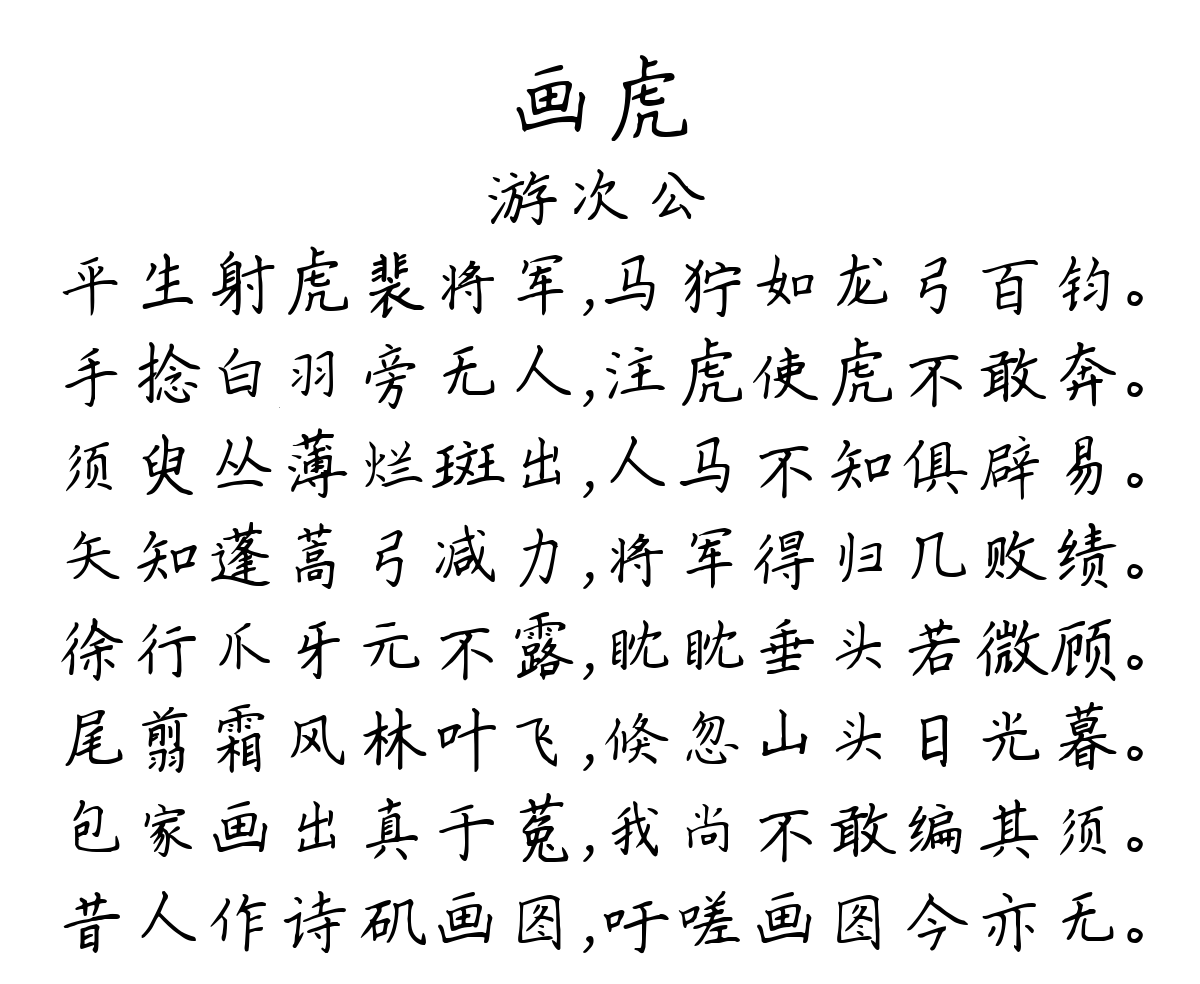 画虎
游次公
平生射虎裴将军,马狞如龙弓百钧。
手捻白羽旁无人,注虎使虎不敢奔。
须臾丛薄烂斑出,人马不知俱辟易。
矢知蓬蒿弓减力,将军得归几败绩。
徐行爪牙元不露,眈眈垂头若微顾。
尾翦霜风林叶飞,倏忽山头日光暮。
包家画出真于菟,我尚不敢编其须。
昔人作诗矶画图,吁嗟画图今亦无。